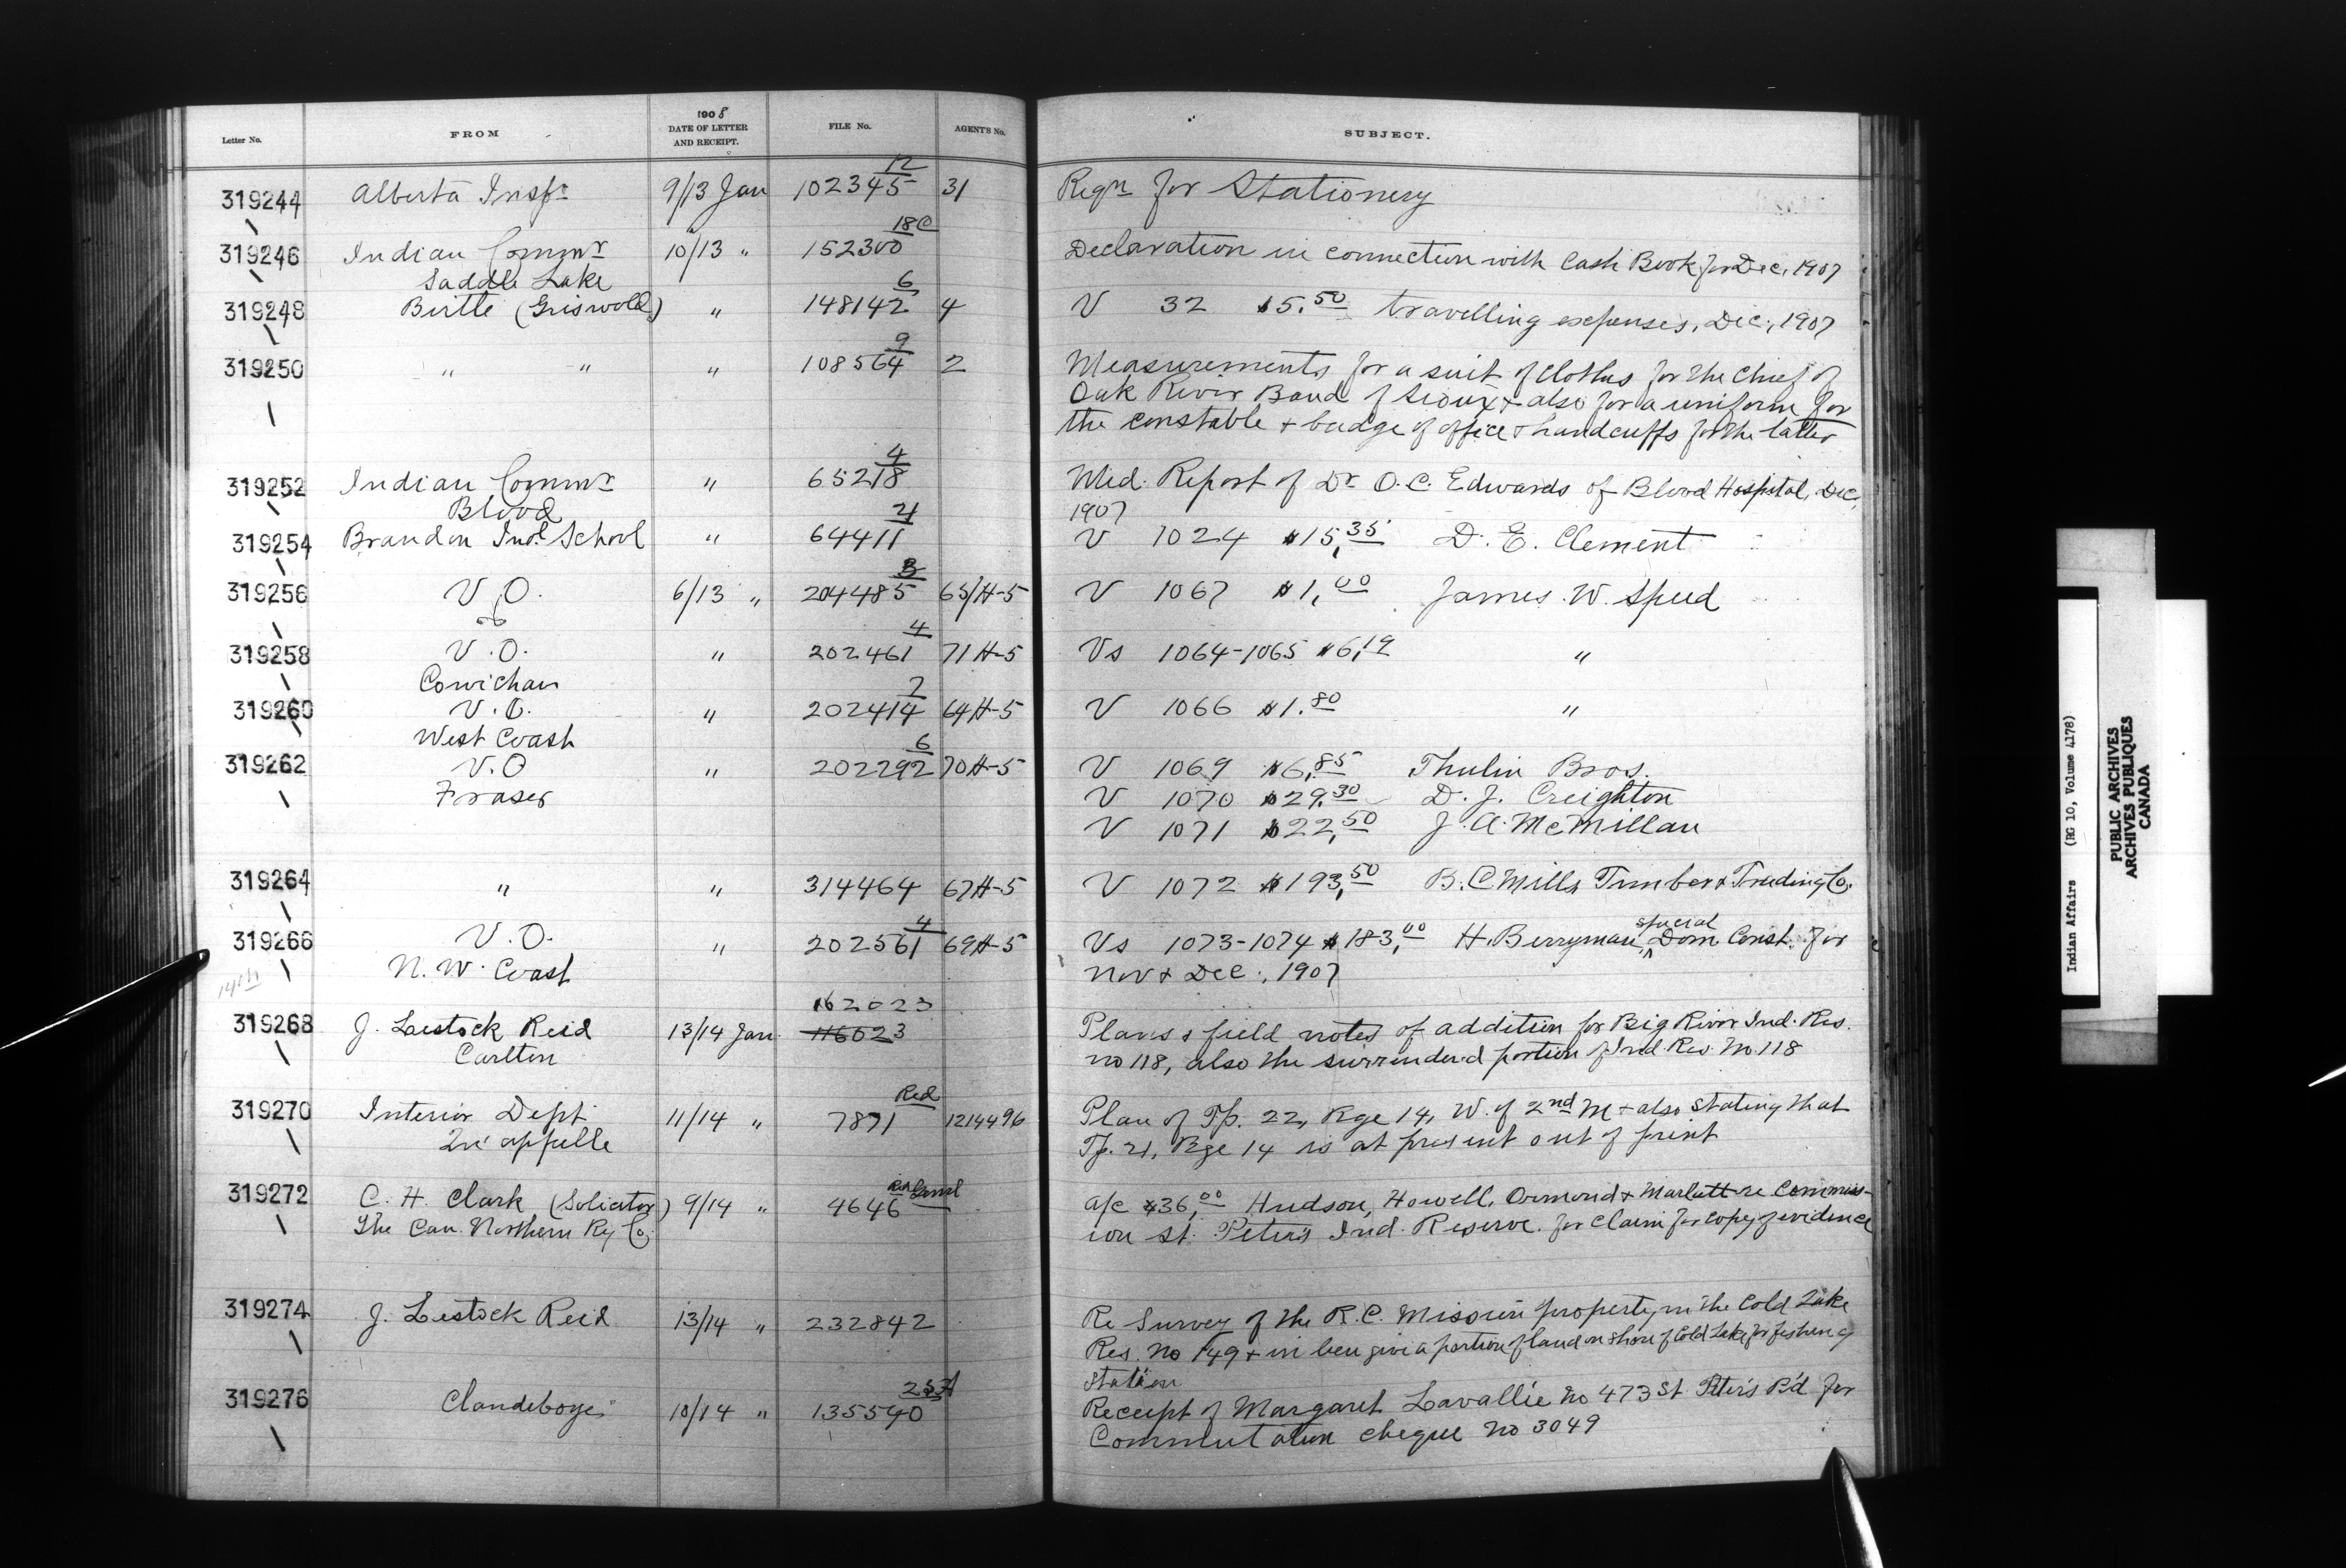 1908
Letter No. FROM DATE OF LETTER AND RECEIPT. FILE No. AGENT'S No. SUBJECT.
12
319244 Alberta Inspr 9/13 Jan 102345 31 Reqn for Stationery
18C
319246 Indian Commr 10/13 " 152300 Declaration in connection with Cash Book for Dec, 1907
Saddle Lake
6
319248 Birtle (Griswold) " 148142 4 V 32 $5.50 travelling expenses, Dec., 1907
9
319250 " " " 108564 2 Measurements for a suit of clothes for the Chief of
Oak River Band of Sioux + also for a uniform for
the constable + badge of office + handcuffs for the latter
4
319252 Indian Commr " 65218 Med. Report of Dr O.C. Edwards of Blood Hospital, Dec,
Blood 1907
21
319254 Brandon Indl School " 64411 V 1024 $15,35 D. E. Clement
3
319256 V.O. 6/13 " 204485 65/H-5 V 1067 $1,00 James W. Speed
4
319258 V.O. " 202461 71H-5 Vs 1064-1065 $6,19 "
Cowichan
7
319260 V.O. " 202414 64H-5 V 1066 $1.80 "
West Coast
6
319262 V.O " 202292 70H-5 V 1069 $6,85 Thulin Bros.
Fraser V 1070 $29.30 D. J. Creighton
V 1071 $22,50 J. A. McMillan
319264 " " 314464 67H-5 V 1072 $193,50 B.C Mills Timber & Trading Co.
4 special
319266 V.O. " 202561 69H-5 Vs 1073-1074 $183,00 H. Berryman, Dom. Const. for
N.W. Coast Nov + Dec., 1907
14th
162023
319268 J. Lestock Reid 13/14 Jan 116023 Plans & field notes of addition for Big River Ind. Res.
Carlton no 118, also the surrendered portion of Ind. Res. No 118
Red
319270 Interior Dept 11/14 " 7871 1214496 Plan of Tp. 22, Rge 14, W. of 2nd M + also stating that
Qu'appelle Tp. 21, Rge 14 is at present out of print
Red
319272 C. H. Clark (Solicitor) 9/14 " 4646 a/c $36,00 Hudson, Howell, Ormond + Marlatt re Commiss-
The Can. Northern Ry Co. ion St. Peter's Ind. Reserve. for claim for copy of evidence
319274 J. Lestock Reid 13/14 " 232842 Re Survey of the R.C. Mission property in the Cold Lake
Res. No 149 + in lieu give a portion of land on shore of Cold Lake for fishing
station
319276 Clandeboye 10/14 " 135540 Receipt of Margaret Lavallie no 473 St Peter's B'd for
Commutation cheque no 3049
Indian Affairs (RG 10, Volume 4178)
PUBLIC ARCHIVES
ARCHIVES PUBLIQUES
CANADA